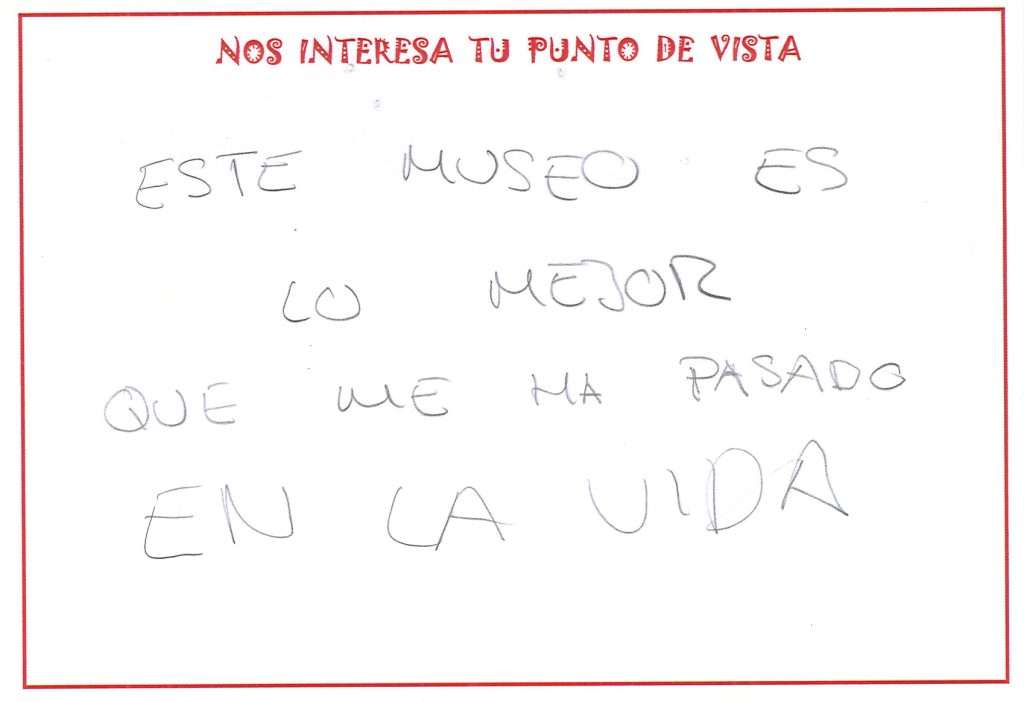 NOS INTERESA TU PUNTO DE VISTA
ESTE MUSEO ES
LO MEJOR
QUE ME HA PASADO
EN LA VIDA